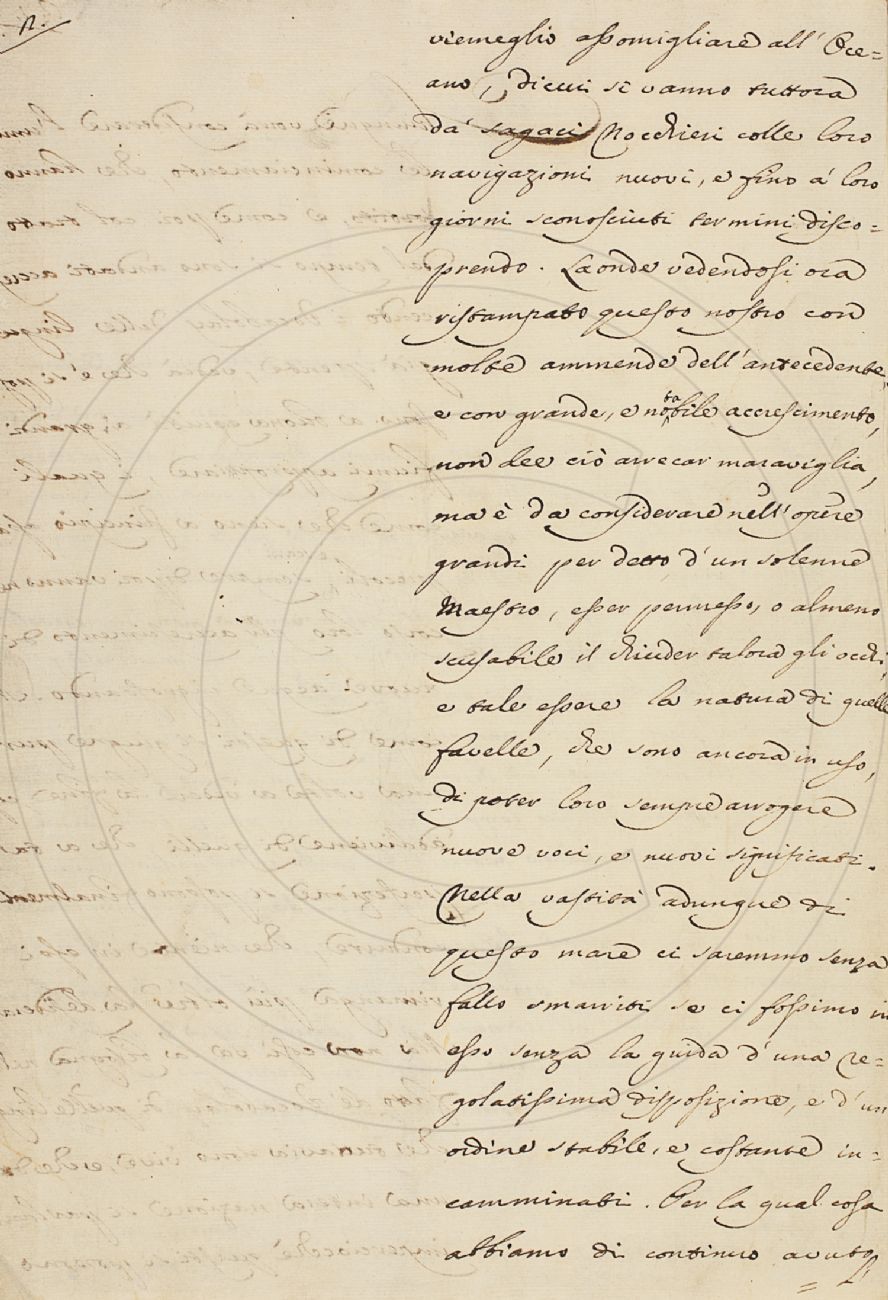 12.
viemeglio assomigliare all' Oce=
ano, dicui si vanno tuttora
da' sagaci Nocchieri colle loro
navigazioni nuovi, e fino a' loro
giorni sconosciuti termini disco=
prendo. Laonde vedendosi ora
ristampato questo nostro con
molte ammende dell' antecedente,
e con grande, e notabile accrescimento,
non dee ciò arrecar maraviglia,
ma è da considerare nell' opere
grandi per detto d' un solenne
Maestro, esser permesso, o almeno
scusabile il chiuder talora gli occhi,
e tale essere la natura di quelle
favelle, che sono ancora in uso,
di poter loro sempre arrogere
nuove voci, e nuovi significati.
Nella vastità adunque di
questo mare ci saremmo senza
fallo smarriti se ci fossimo in
esso senza la guida d' una re=
golatissima disposizione, e d' un
ordine stabile, e costante in=
camminati. Per la qual cosa
abbiamo di continuo avuto
= l'